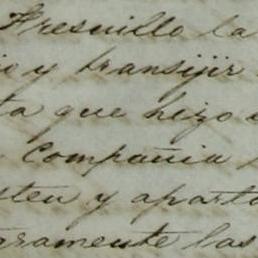 Fresnillo la
io y transijir
ta que hizo
Compañia
sten y aparto
gramente las